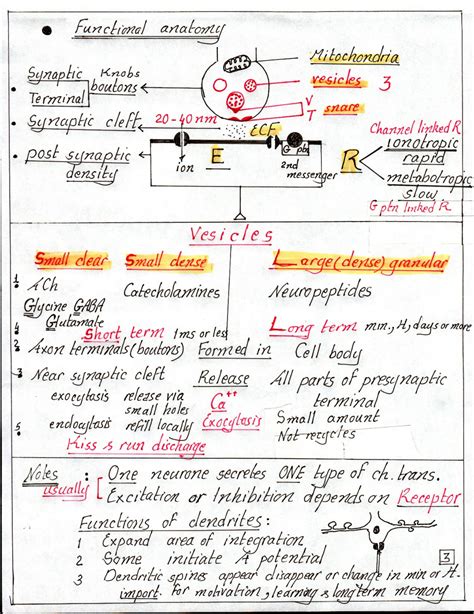 Functional anatomy
Mitochondria
Synaptic Knobs
boutons
Terminal
vesicles 3
V
T snare
Synaptic cleft 20-40nm
ECF
post synaptic
density
ion
E
G ptn
2nd
messenger
R
Channel linked R
ionotropic
rapid
metabotropic
slow
G ptn linked R
Vesicles
Small clear Small dense Large (dense) granular
1. ACh Catecholamines Neuropeptides
Glycine GABA
Glutamate
4 Short term 1ms or less Long term mm., H, days or more
2 Axon terminals (boutons) Formed in Cell body
3 Near synaptic cleft Release All parts of presynaptic
terminal
exocytosis release via
small holes
Ca++
Exocytosis
Small amount
5. endocytosis refill locally
Not recycles
Kiss & run discharge
Notes : One neurone secretes ONE type of ch. trans.
usually Excitation or Inhibition depends on Receptor
Functions of dendrites:
1 Expand area of integration
2 Some initiate A potential
3 Dendritic spines appear disappear or change in min or H.
import. for motivation, learning & longterm memory
3